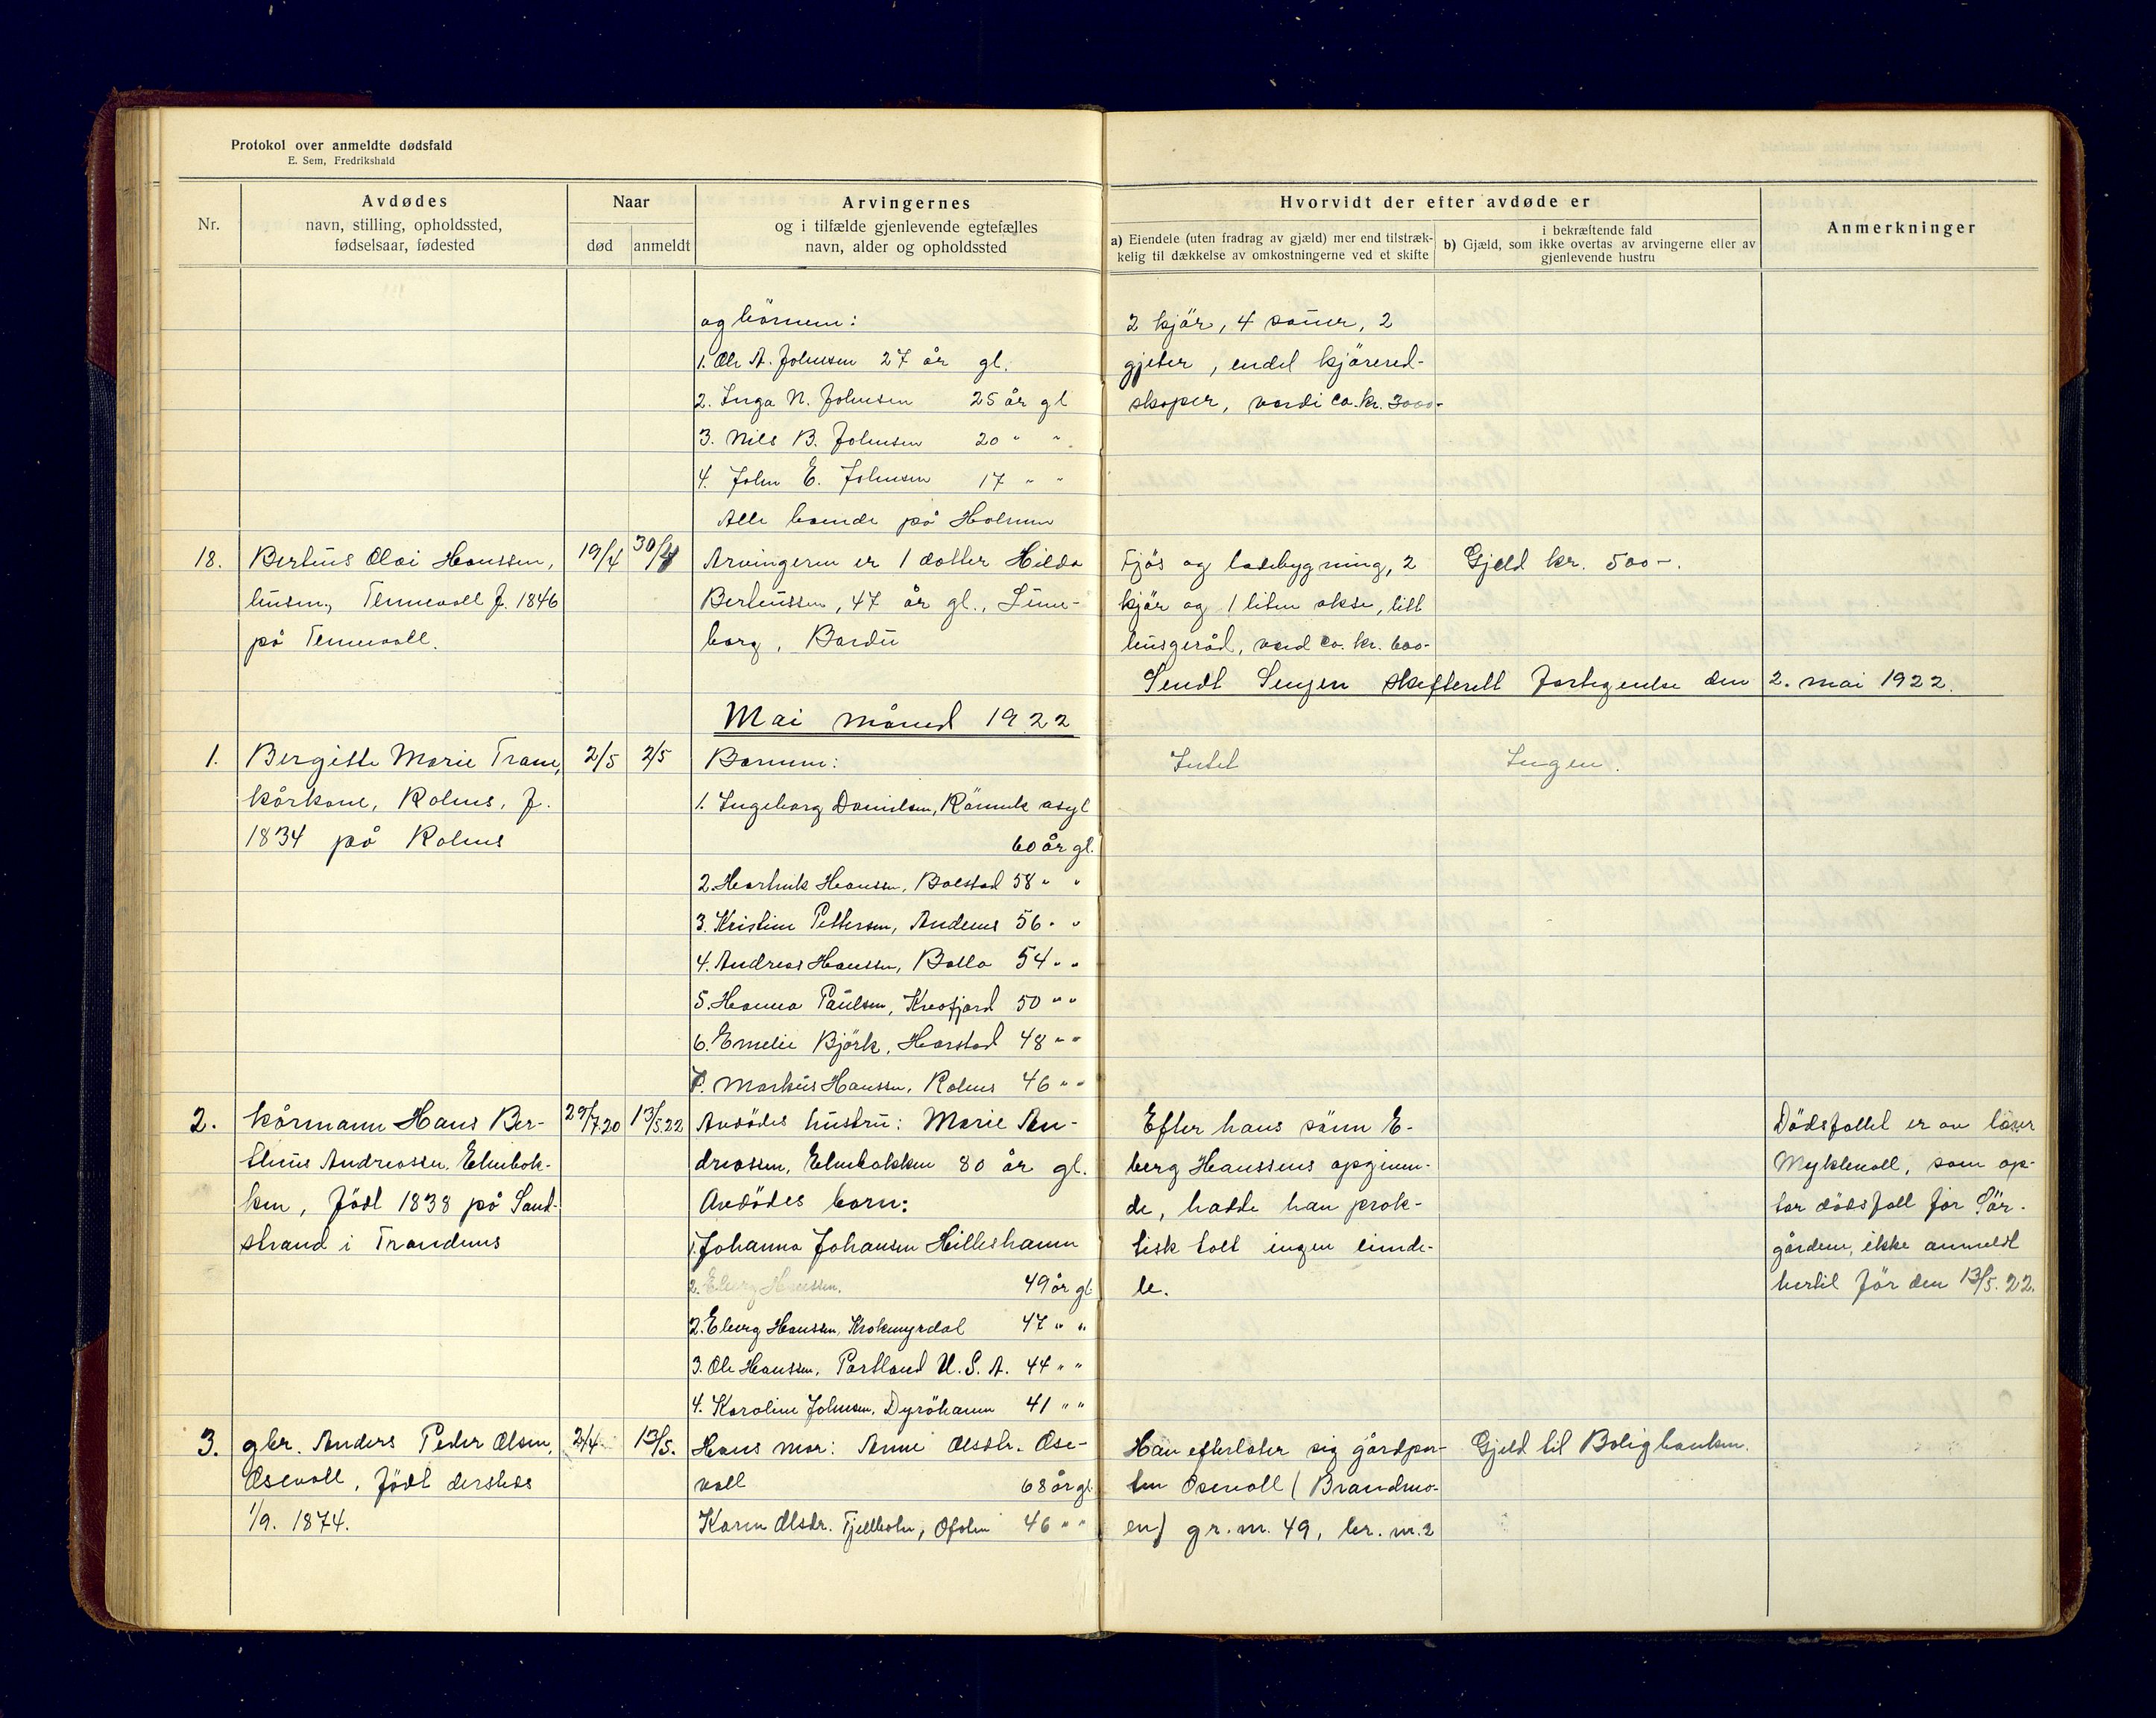 Protokol over anmeldte dødsfald
E. Sem, Fredrikshald
Nr.
Avdødes
navn, stilling, opholdssted,
fødselsaar, fødested
Naar
død
anmeldt
Arvingernes
og i tilfælde gjenlevende egtefælles
navn, alder og opholdssted
Hvorvidt der efter avdøde er
a) Eiendele (uten fradrag av gjæld) mer end tilstræk-
kelig til dækkelse av omkostningerne ved et skifte
i bekræftende fald
b) Gjæld, som ikke overtas av arvingerne eller av
gjenlevende hustru
Anmerkninger
og börnene:
1. Ole A. Johnsen 27 år gl.
2. Inga N. Johnsen 25 år gl
3. Nils B. Johnsen 20 " "
4. John E. Johnsen 17 " "
Alle boende på
2 kjör, 4 sauer, 2
gjeter, endel kjörered-
skaper, verdi ca. kr. 3000-
18.
Bertéus Olai Hanssen,
Tennevoll f. 1846
på Tennevoll.
19/4
30/4
Arvingeren er 1 dotter Hilda
Berteussen, 47 år gl., Lune-
borg, Bardu
Fjös og ladebygning, 2
kjör og 1 liten okse, litt
husgeråd, verd ca. kr. 600-
Gjeld kr. 500-.
Sendt Senjen skifterett fortegnelse den 2. mai 1922.
Mai måned 1922
1.
Bergitte Marie Trane,
kårkone, Rolnes, f.
1834 på Rolnes
2/5
2/5
Barnene:
1. Ingeborg Danielsen, Rönvik asyl
60 år gl.
2. Hartvik Hanssen, Bolstad 58 " "
3. Kristine Pettersen, Andenes 56 " "
4. Andreas Hanssen, Balla 54 " "
5. Hanna Paulsen, Kvefjord 50 " "
6. Emelie Björk, Harstad 48 " "
7. Markus Hanssen, Rolnes 46 " "
Intet
Ingen.
2.
kårmann Hans Ber-
theus Andreassen, Elvebak-
ken, född 1838 på Sand-
strand i Trondenes
29/7.20
13/5.22
Avdödes hustru: Marie An-
dreassen, Elvebakken 80 år gl.
Avdödes barn:
1. Johanna Johansen Hilleshamn
2. Eberg Hanssen. 49 år gl
2. Eberg Hanssen, Krokmyrdal 47 " "
3. Ole Hanssen, Portland U.S.A. 44 " "
4. Karoline Johnsen, Dyröhamn 41 " "
Efter hans sönn E-
berg Hanssens opgiven-
de, hadde han prak-
tisk talt ingen eiende-
le.
Dödsfallet er av
Myklevoll, som op-
tar dödsfall for Sör-
gårdene, ikke anmeldt
hertil för den 13/5. 22.
3.
gbr. Anders Peder Olsen,
Osevoll, född dersteds
1/9. 1874.
2/4
13/5.
Hans mor: Anne Olsdtr. Ose-
voll 68 år gl
Karen Olsdr. Fjellholm, 46 " "
Han efterlater sig gårdpar-
ten Osevoll (Brandmo-
en) gr. nr. 49, br. nr. 2
Gjeld til Boligbanken.